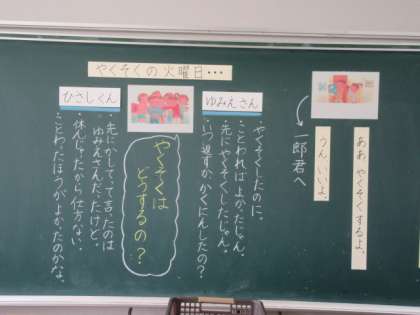 ああ、やくそくするよ。
うん、いいよ。
一郎君へ
やくそくの火曜日・・・
ゆみえさん
・やくそくしたのに。
・ことわればよかったじゃん。
・先にやくそくしたじゃん。
・いつ返すか、かくにんしたの?
やくそくは
どうするの?
ひさしくん
・先にかしてって言ったのは
ゆみえさんだったけど。
・休んじゃったから仕方ない。
・ことわったほうがよかったのかな。